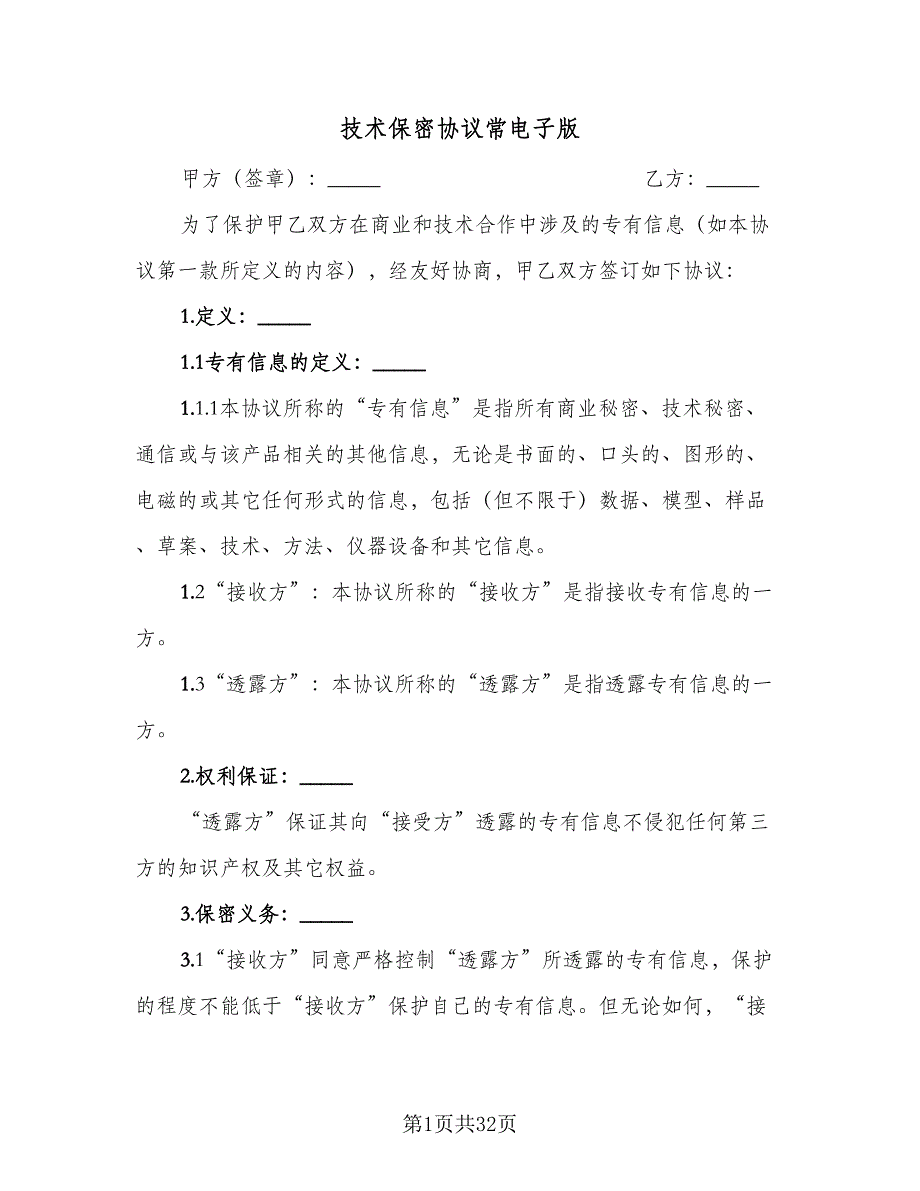 技术保密协议常电子版
甲方（签章）：_____ 乙方：_____
为了保护甲乙双方在商业和技术合作中涉及的专有信息（如本协
议第一款所定义的内容），经友好协商，甲乙双方签订如下协议：
1.定义：_____
1.1专有信息的定义：_____
1.1.1本协议所称的“专有信息”是指所有商业秘密、技术秘密、
通信或与该产品相关的其他信息，无论是书面的、口头的、图形的、
电磁的或其它任何形式的信息，包括（但不限于）数据、模型、样品
、草案、技术、方法、仪器设备和其它信息。
1.2“接收方”：本协议所称的“接收方”是指接收专有信息的一
方。
1.3“透露方”：本协议所称的“透露方”是指透露专有信息的一
方。
2.权利保证：_____
“透露方”保证其向“接受方”透露的专有信息不侵犯任何第三
方的知识产权及其它权益。
3.保密义务：_____
3.1“接收方”同意严格控制“透露方”所透露的专有信息，保护
的程度不能低于“接收方”保护自己的专有信息。但无论如何，“接
第1页共32页